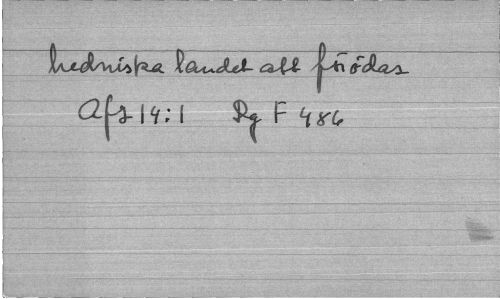 hedniska landet att förödas
Afz 14:1 Rg F 486